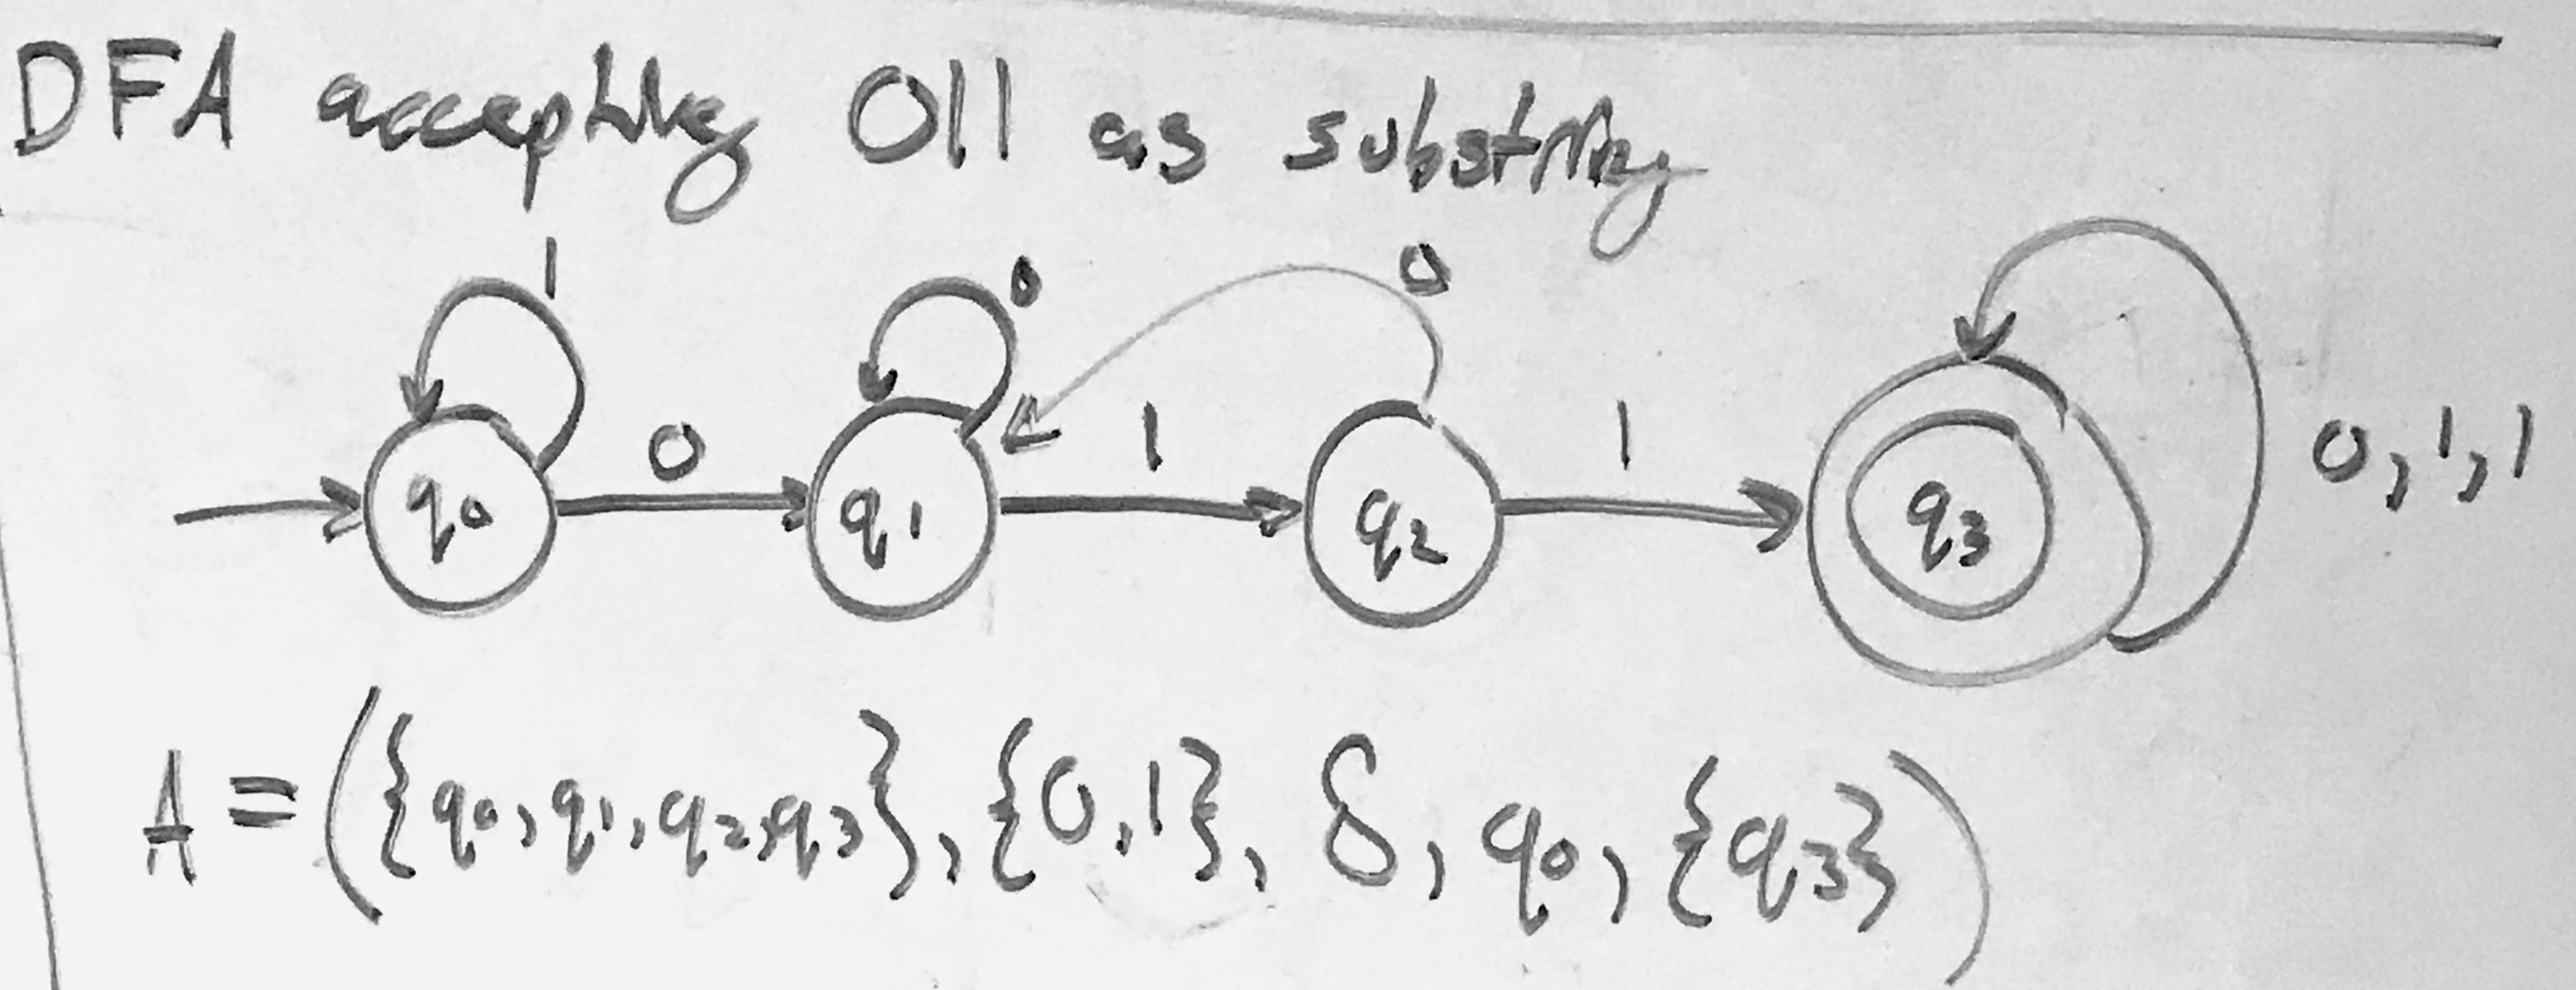 DFA accepting 011 as substring
1 0 0
0 1 1 0,1,1
q0 q1 q2 q3
A = ({q0, q1, q2, q3}, {0,1}, δ, q0, {q3})